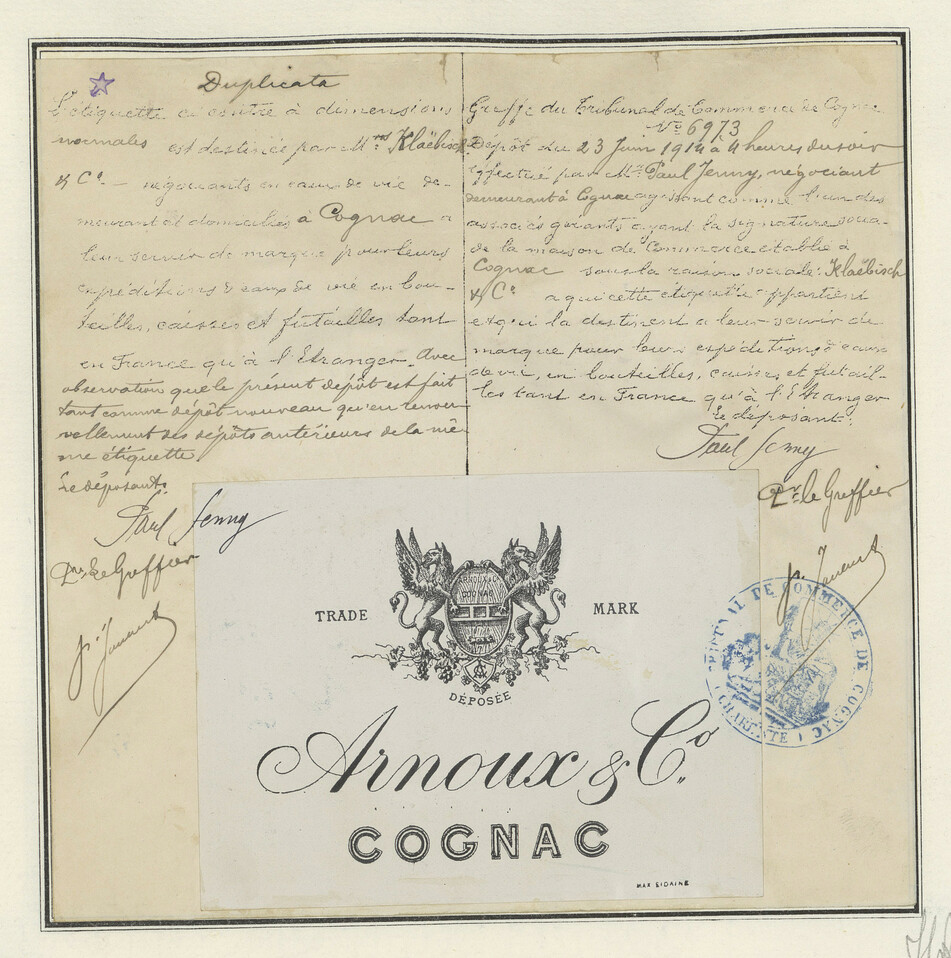 Duplicata
L'étiquette ci contre à dimensions
normales est destinée par Mrs Klaëbisch
& Co. — négociants en eaux de vie de-
meurant et domiciliés à Cognac a
leur servir de marque pour leurs
expéditions d'eaux de vie en bou-
teilles, caisses et futailles tant
en France qu'à l'Etranger. Avec
observation que le présent dépôt est fait
tant comme dépôt nouveau qu'en renou-
vellement des dépôts antérieurs de la mê-
me étiquette.
Le déposant:
Paul Jenny
Pr. Le Greffier
Greffe du Tribunal de Commerce de Cognac
No 6973
Dépôt du 23 Juin 1914 à 4 heures du soir
effectué par Mr. Paul Jenny, négociant
demeurant à Cognac agissant comme l'un des
associés gérants ayant la signature socia-
de la maison de Commerce etablie à
Cognac sous la raison sociale: Klaëbisch
& Co. a qui cette etiquette appartient
et qui la destinent a leur servir de
marque pour leurs expéditions d'eaux
de vie, en bouteilles, caisses et futail-
les tant en France qu'à l'Etranger
Le déposant:
Paul Jenny
Pr. le Greffier
TRIBUNAL DE COMMERCE DE COGNAC
(CHARENTE)
ARNOUX & Co
COGNAC
TRADE MARK
DÉPOSÉE
Arnoux & Co.
COGNAC
MAX SIDAINE